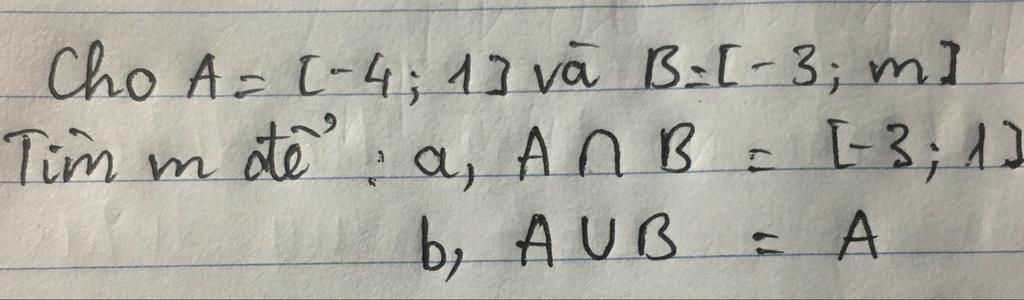 Cho A = [-4; 1] và B = [-3; m]
Tìm m để : a, A ∩ B = [-3; 1]
b, A ∪ B = A